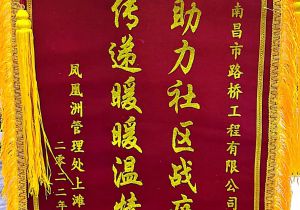 南昌市路桥工程有限公司
助力社区战疫
传递暖暖温情
凤凰洲管理处上滩
二〇二二年